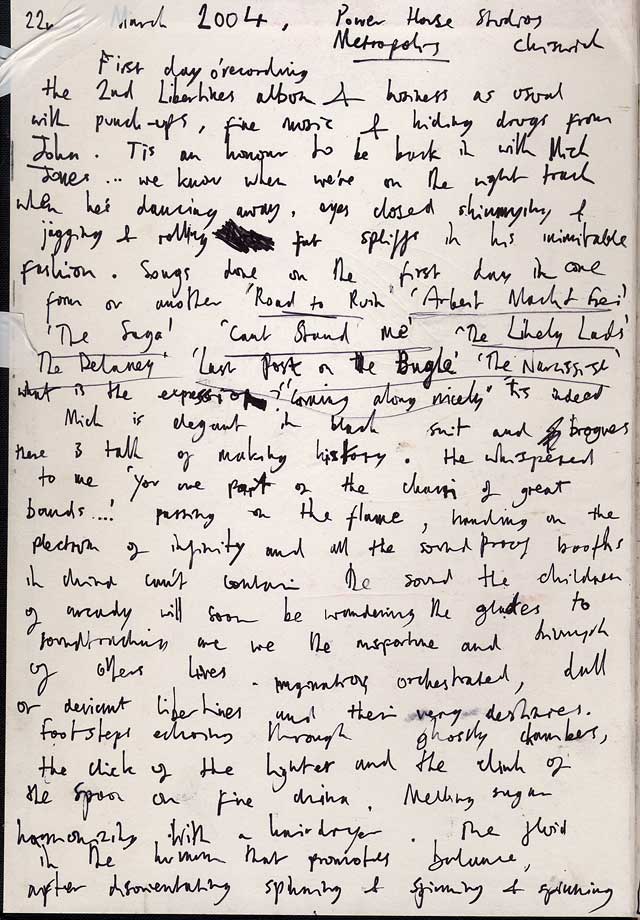 22n March 2004, Power House Studios
Metropolis Chiswick
First day o'recording
the 2nd Libertines album & business as usual
with punch-ups, fine music & hiding drugs from
John. Tis an honour to be back in with Mick
Jones... we know when we're on the right track
when he's dancing away, eyes closed shimmying &
jigging & rolling fat spliffs in his inimitable
fashion. Songs done on the first day in one
form or another 'Road to Ruin' 'Arbeit Macht Frei'
'The Saga' 'Cant Stand me' 'The Likely Lads'
'The Delaney' 'Last Post on the Bugle' 'The Narcissist'
what is the expression? "Coming along nicely" tis indeed
Mick is elegant in black suit and brogues
there is talk of making history. He whispered
to me 'you are part of the chain of great
bands....' passing on the flame, handing on the
plectrum of infinity and all the sound proof booths
in china can't contain the sound the children
of arcady will soon be wandering the glades to
soundtracking are we the misfortune and triumph
of others lives. orchestrated, dull
or deviant libertines and their very desires.
Footsteps echoing through ghostly chambers,
the click of the lighter and the clink of
the spoon on fine china. Melting sugar
harmonizing with a hairdryer. The fluid
in the human that promotes balance,
after disorientating spinning & spinning & spinning